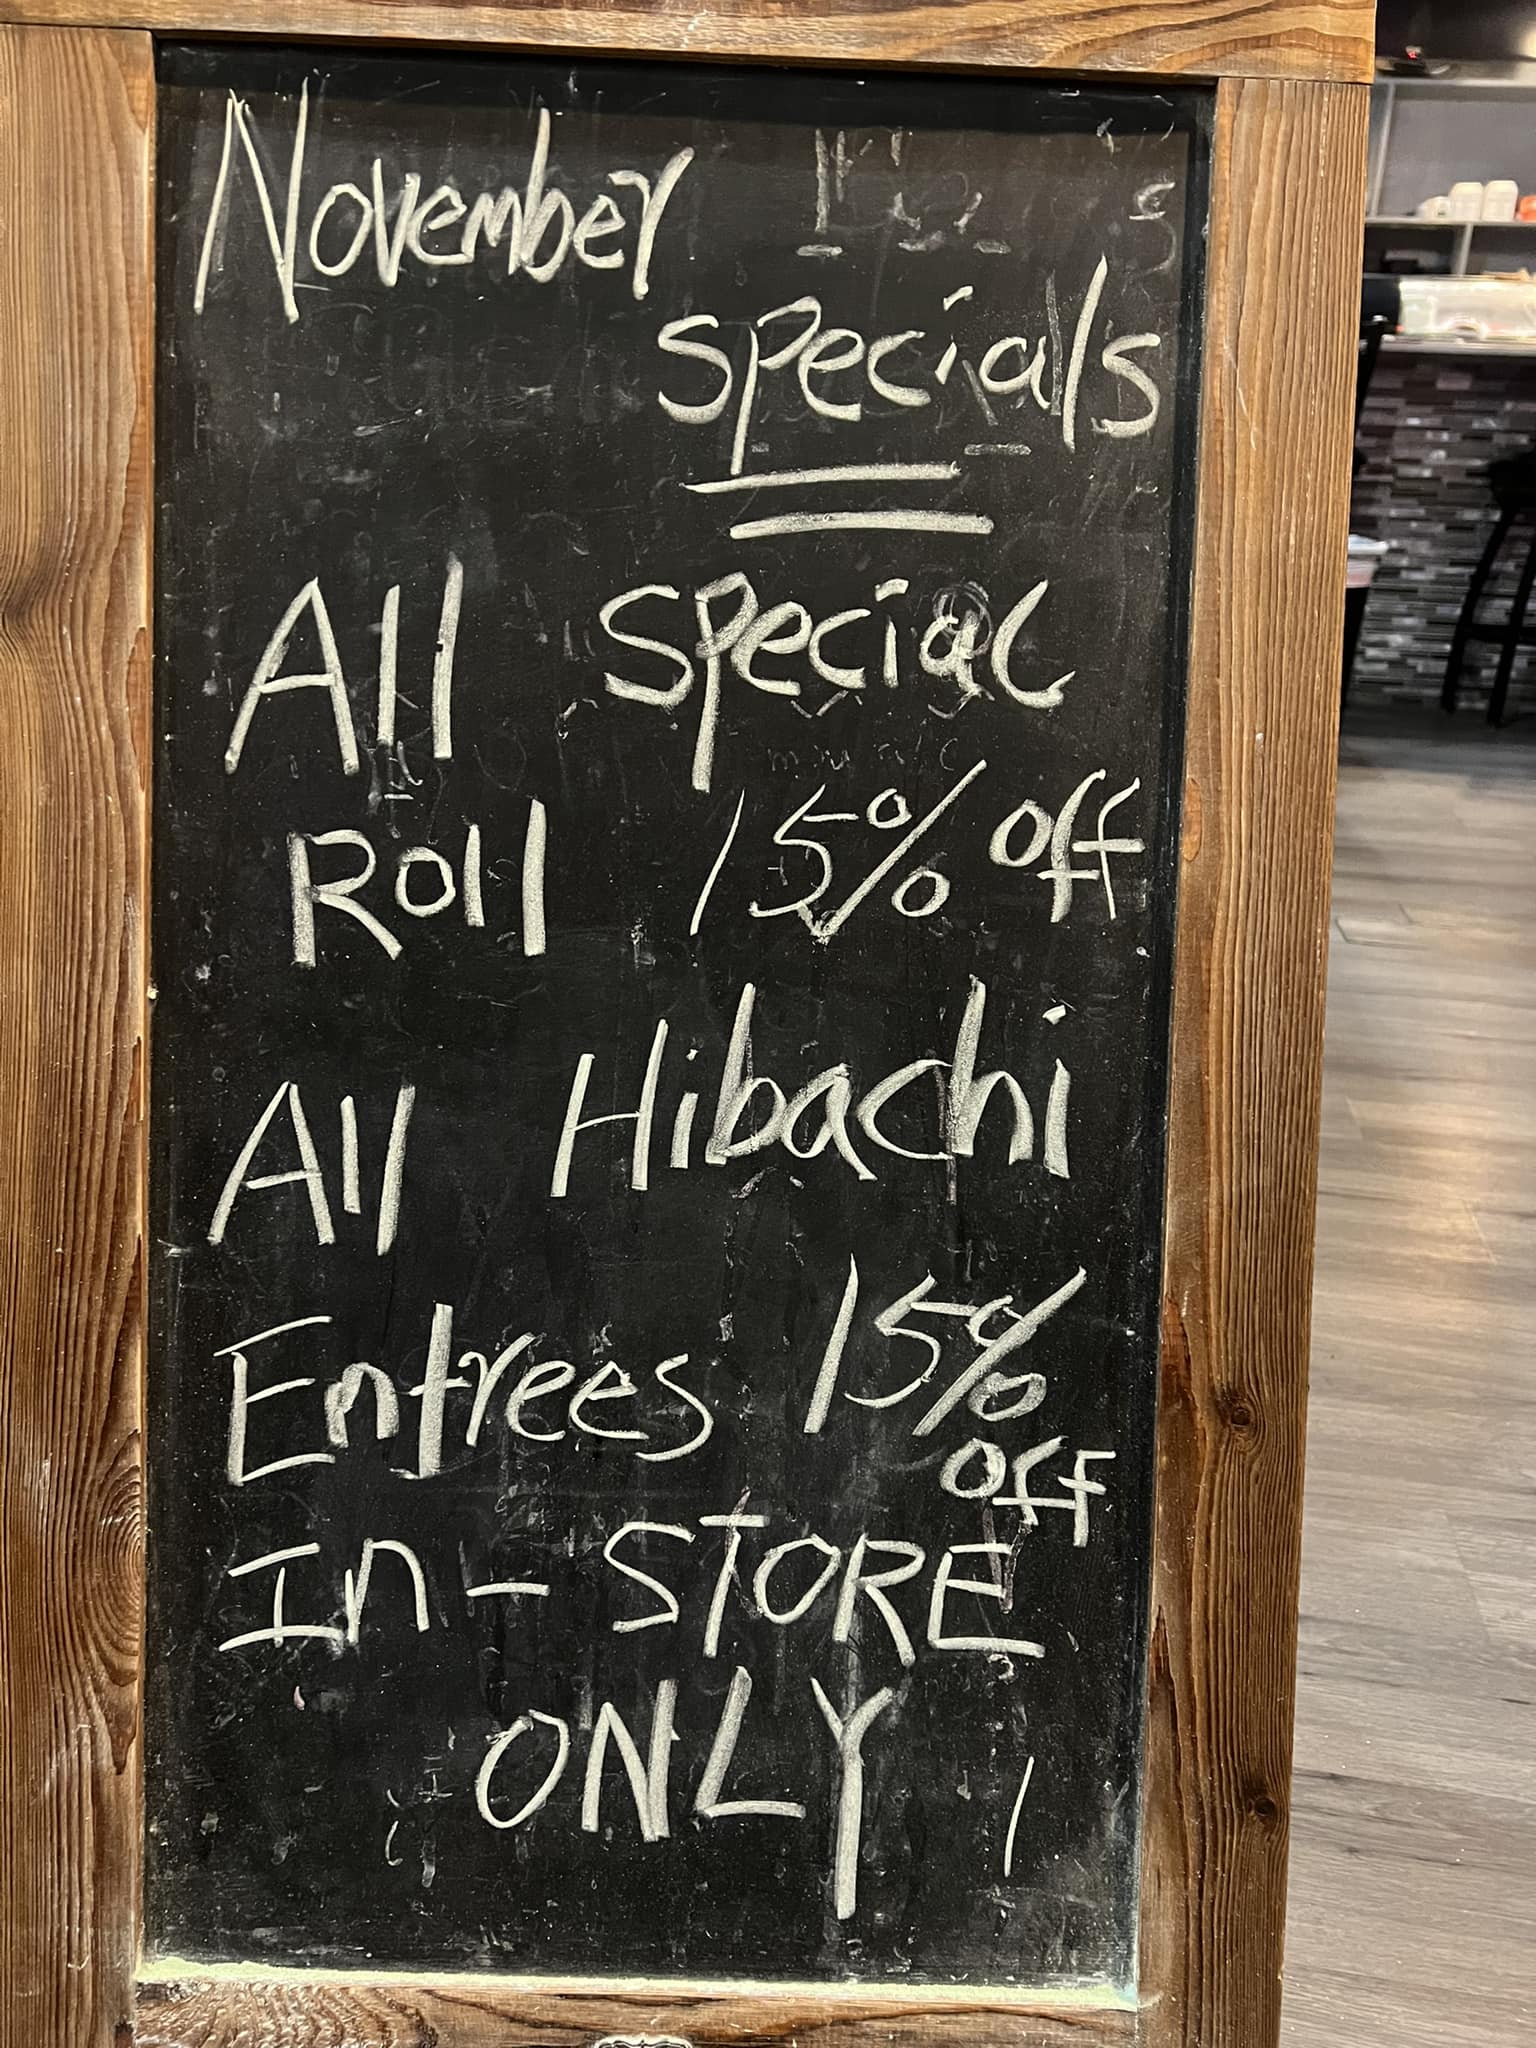 November
specials
All special
Roll 15% off
All Hibachi
Entrees 15%
off
In-STORE
ONLY